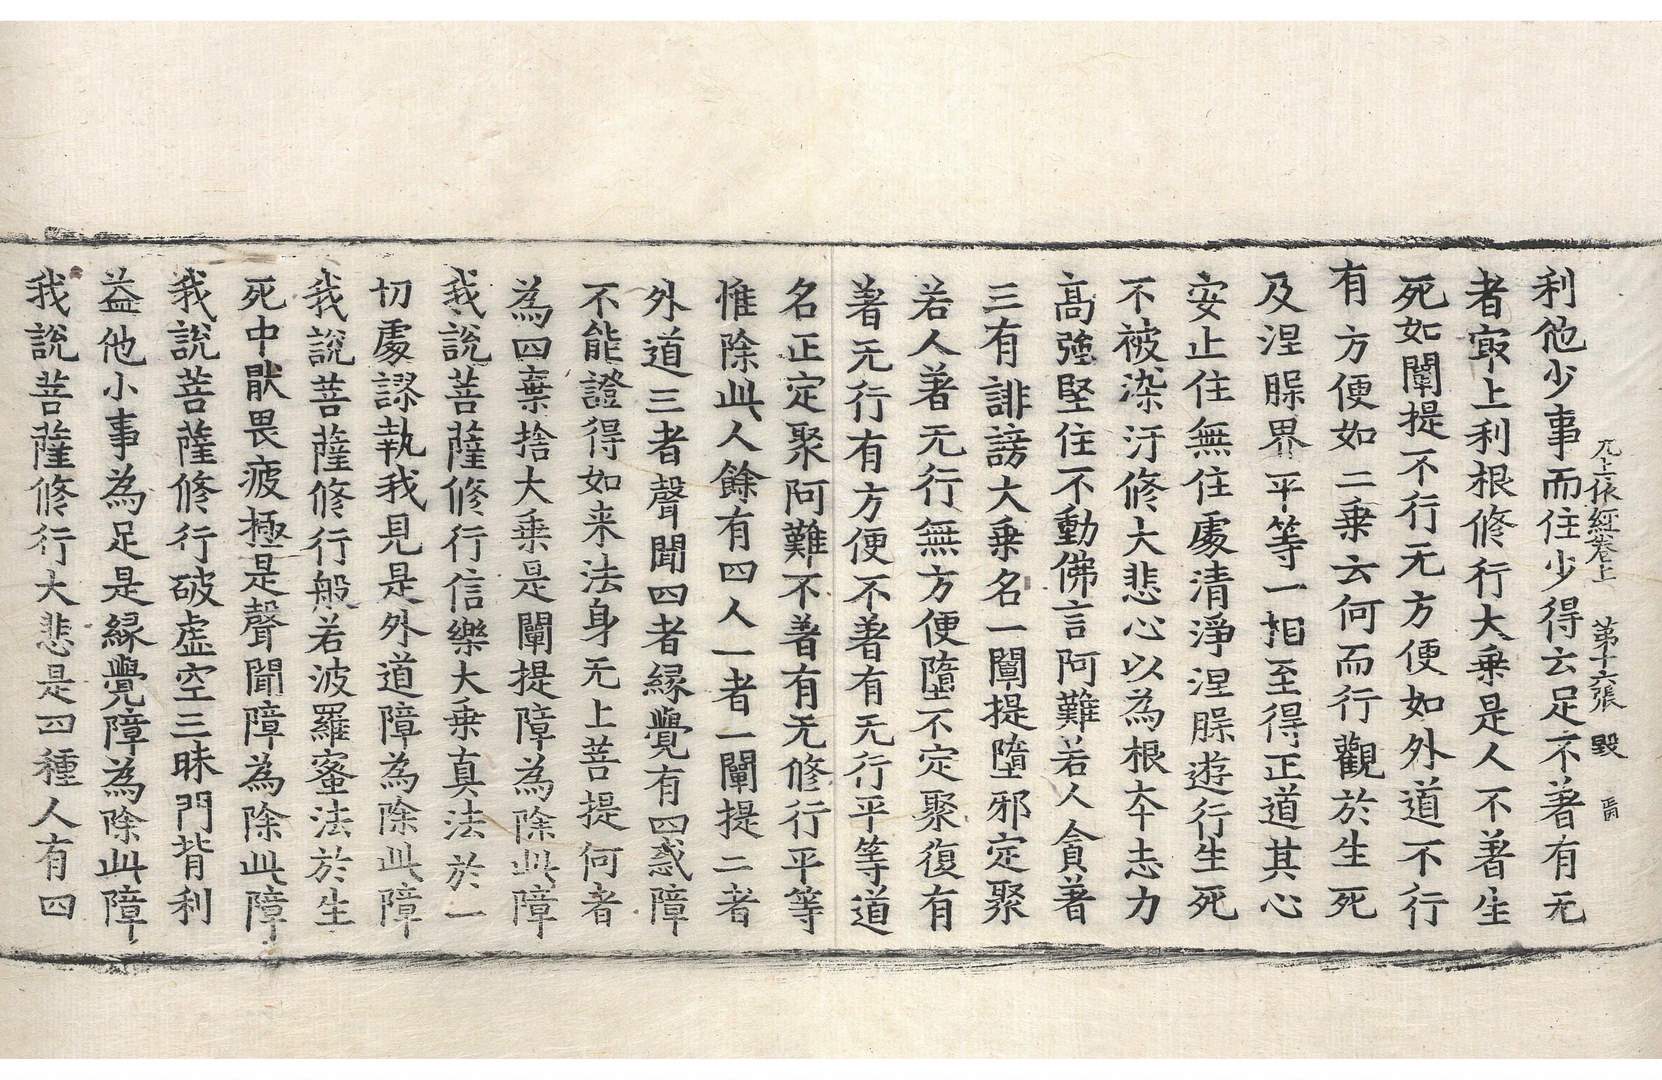 无上依經卷上　第十六張　毀
利他少事而住少得云足不著有无
者㝡上利根修行大乗是人不著生
死如闡提不行无方便如外道不行
有方便如二乗云何而行觀於生死
及涅槃界平等一相至得正道其心
安止住無住處清淨涅槃遊行生死
不被染汙修大悲心以為根夲志力
高強堅住不動佛言阿難若人貪著
三有誹謗大乗名一闡提墮邪定聚
若人著无行無方便墮不定聚復有
著无行有方便不著有无行平等道
名正定聚阿難不著有无修行平等
惟除此人餘有四人一者一闡提二者
外道三者聲聞四者縁覺有四惑障
不能證得如来法身无上菩提何者
為四棄捨大乗是闡提障為除此障
我說菩薩修行信樂大乗真法於一
切處謬執我見是外道障為除此障
我說菩薩修行般若波羅蜜法於生
死中猒畏疲極是聲聞障為除此障
我說菩薩修行破虛空三昧門背利
益他小事為足是縁覺障為除此障
我說菩薩修行大悲是四種人有四